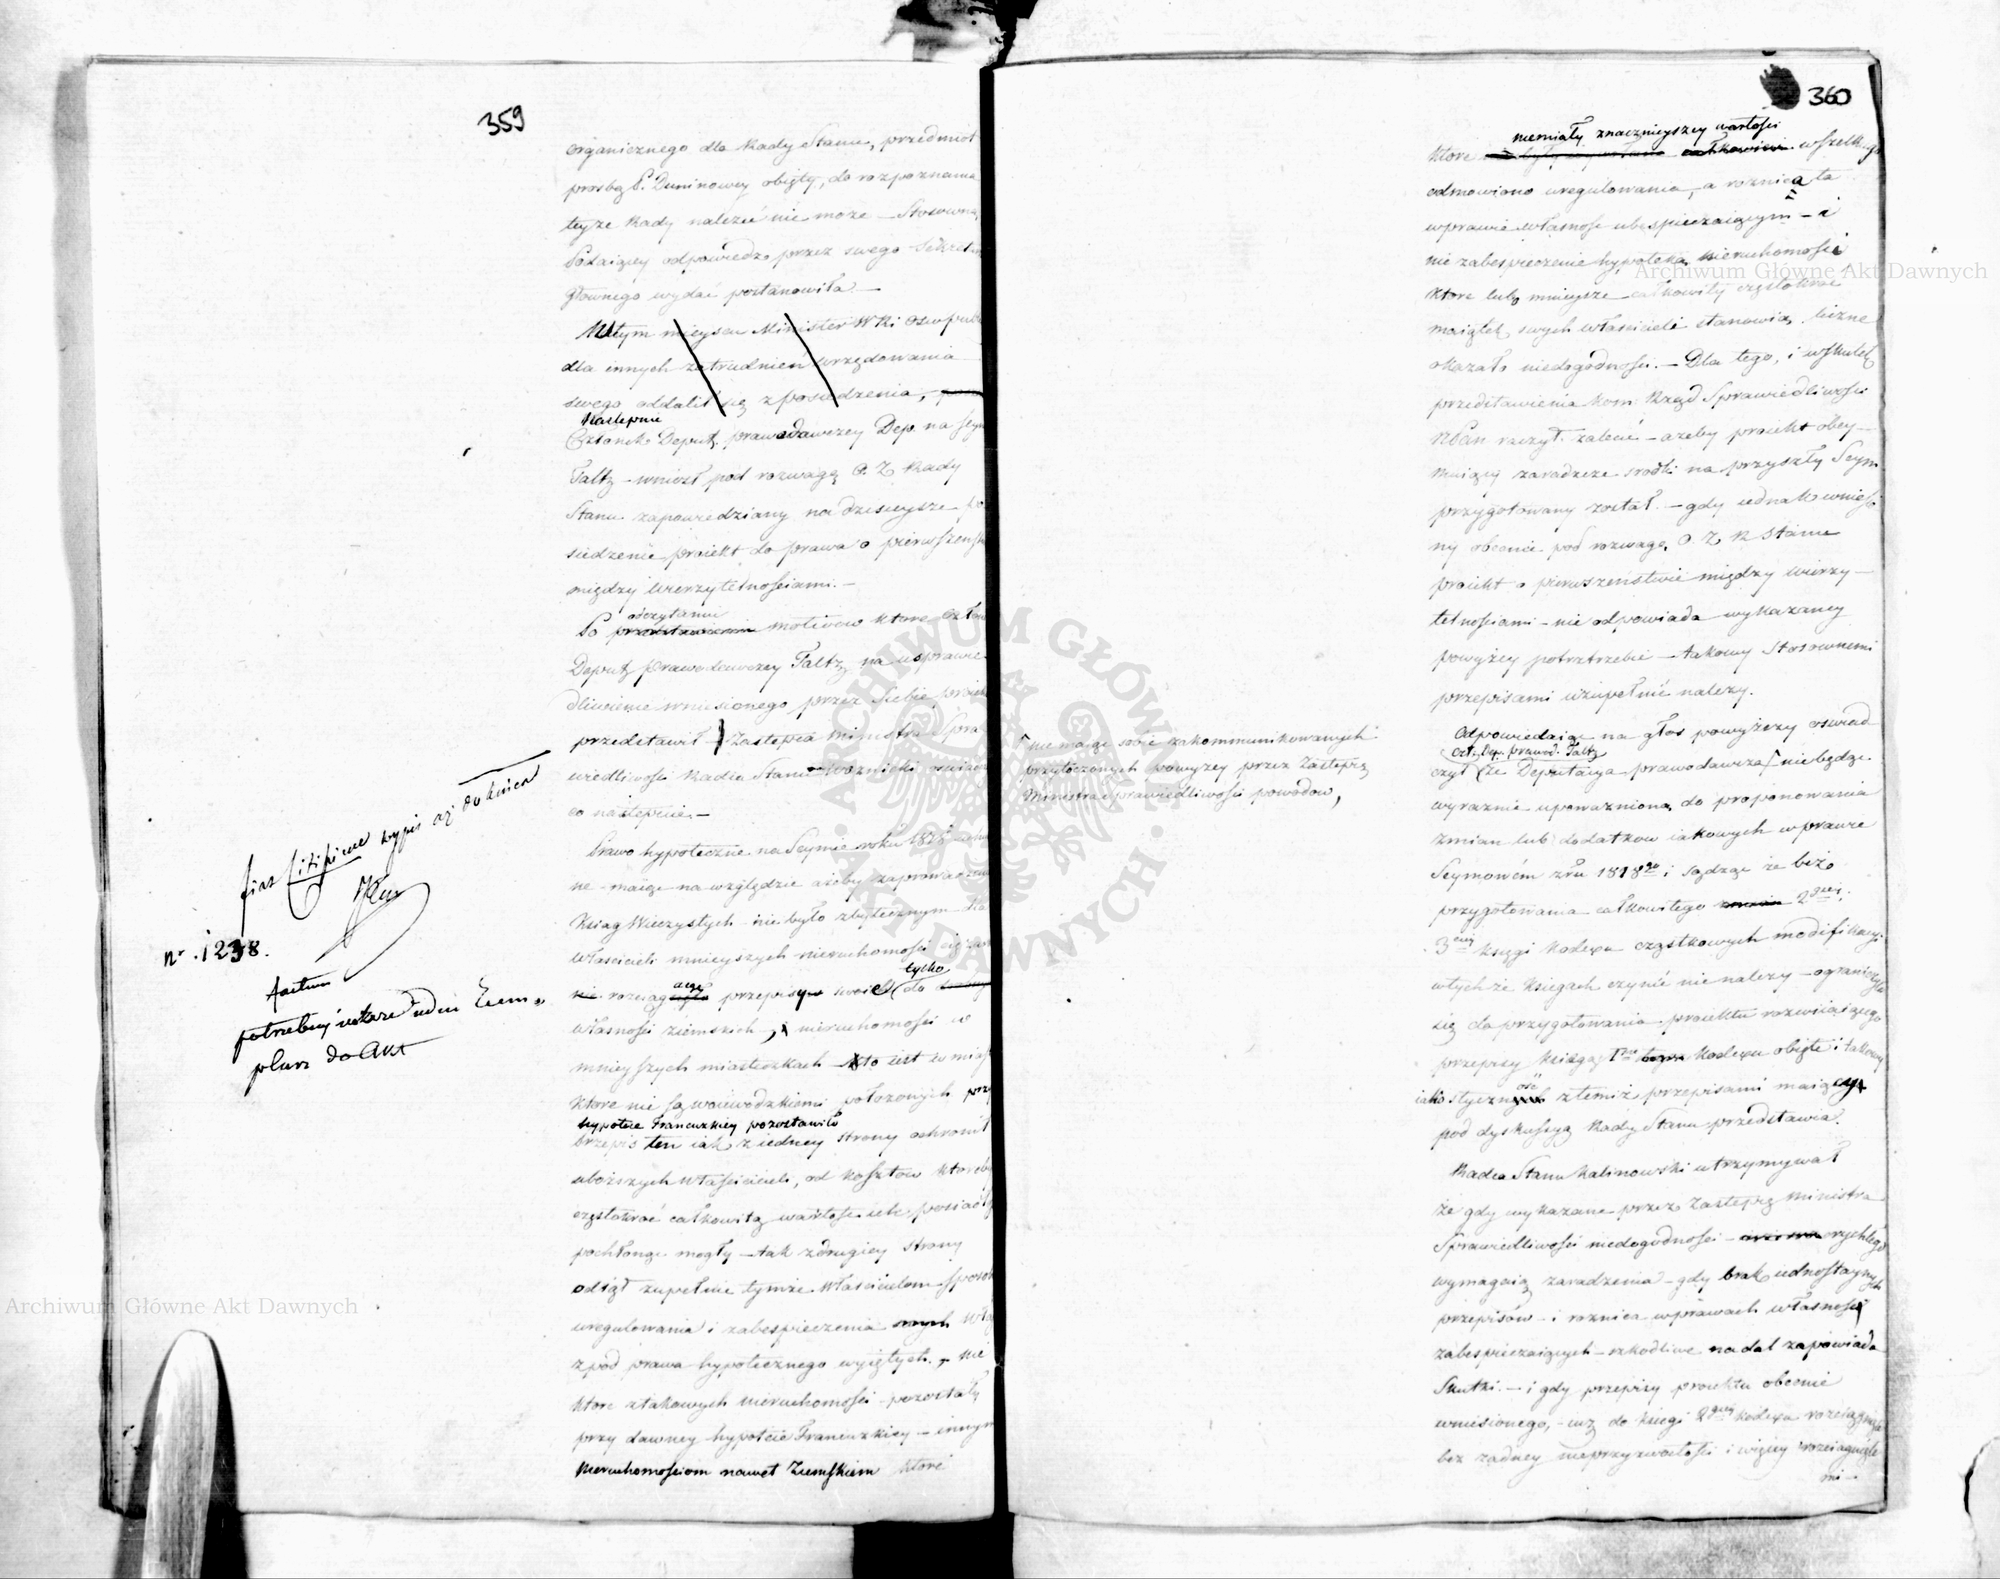 359
organicznego dla Rady Stanu, przedmiot
prośbą P. Duninowey objęty, do rozpoznania
teyże Rady należeć nie może — Stosowną
Podaiącey odpowiedz przez swego Sekretarza
Głownego wydać postanowiła —
W tym mieyscu Minister WRi Oświe
dla innych zatrudnień urzędowania
swego oddalił się z posiedzenia,
Następnie
Członek Deput. prawodawczey Dep. na Seym
Faltz wniosł pod rozwagę O. Z. Rady
Stanu zapowiedziany na dzisieysze po
siedzenie proiekt do prawa o pierwszeństwie
między wierzytelnościami. —
odczytaniu
Po przedstawieniu motivow ktore Człon
Deput. Prawodawczey Faltz na usprawie
dliwienie wniesionego przez Siebie proiektu
przedstawił — Zastępca Ministra Spra
wiedliwości Radca Stanu Woznicki oświad
co następuie. —
Prawo hypoteczne na Seymie roku 1818
ne maiąc na względzie ażeby zaprowadzenie
Ksiąg Wieczystych nie było zbytecznym dla
Właścicieli mnieyszych nieruchomości ciężarem
tylko
nie rozciąg przepisy swoie do
własności ziemskich, i nieruchomości w
mnieyszych miasteczkach — to iest w miastach
ktore nie są woiewodzkiemi położonych przy
hypotece Francuzkiey pozostawiło
Przepis ten iak z iedney strony ochronił
uboższych Właścicieli, od kosztow ktoreby
częstokroć całkowitą wartość ich posiadłości
pochłonąć mogły — tak z drugiey strony
odiął zupełnie tymże Właścicielom sposob
uregulowania i zabespieczenia onych
z pod prawa hypotecznego wyiętych. — nie
ktore z takowych nieruchomości pozostały
przy dawney hypotece Francuzkiey — innym
Nieruchomościom nawet Ziemskiem ktore
wypis
Nr. 1238.
potrzebny
do Akt
360
niemiały znacznieyszey wartości
ktore całkowicie wszelkiego
odmowiono uregulowania, a roznica ta
w prawie własność ubespieczaiącym — i
nie zabespieczenie hypoteką nieruchomości
ktore lubo mnieysze całkowity częstokroć
maiątek swych właścicieli stanowią, liczne
okazało niedogodności. — Dla tego, i wskutek
przedstawienia Kom: Rząd Sprawiedliwości
NPan raczył zalecić — ażeby proiekt obey—
muiący zaradcze srodki na przyszły Seym
przygotowany został. — gdy iednak wniesio
ny obecnie pod rozwagę O. Z. R Stanu
proiekt o pierwszeństwie między wierzy—
telnościami — nie odpowiada wykazaney
powyżey potrztrzebie — takowy Stosownemi
przepisami uzupełnić należy.
Odpowiadaiąc na głos powyższy oswiad
Czł. Dep. prawod. Faltz
czył że Deputacya prawodawcza nie będąc
wyraznie upoważnioną do proponowania
zmian lub dodatkow iakowych w prawie
Seymowém z ru 1818go i sądząc że bez
przygotowania całkowitego 2giey i
3ciey księgi Kodexu cząstkowych modifikacyi
w tych że księgach czynić nie należy — ograniczyła
się do przygotowania proiektu rozwiiaiącego
przepisy księgą 1szą Kodexu obięte i takowy
iako styczność z temiż przepisami maiący
pod dyskussyą Rady Stanu przedstawia.
Radca Stanu Kalinowski utrzymywał
że gdy wykazane przez Zastępcę Ministra
Sprawiedliwości niedogodności — rychlego
wymagaią zaradzenia — gdy brak iednostaynych
przepisów — i roznica w prawach własność
zabespieczaiących — szkodliwe nadal zapowiada
Skutki. — i gdy przepisy proiektu obecnie
wniesionego, — iuż do księgi 2giey Kodexu rozciągnięte
bez żadney nieprzyzwoitości i więcey rozciągnięte
mi —
nie maiąc sobie zakommunikowanych
przytoczonych powyżey przez Zastępcę
Ministra sprawiedliwości powodow,
ARCHIWUM GŁÓWNE AKT DAWNYCH
Archiwum Główne Akt Dawnych
Archiwum Główne Akt Dawnych